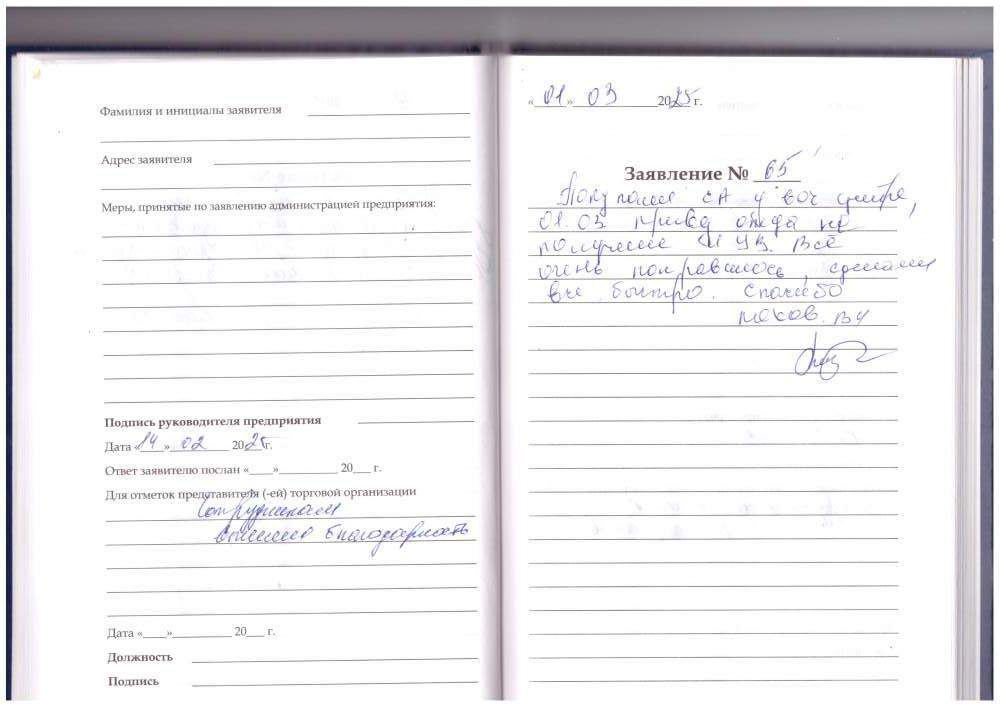 Фамилия и инициалы заявителя
Адрес заявителя
Меры, принятые по заявлению администрацией предприятия:
Подпись руководителя предприятия
Дата «14» 02 2025г.
Ответ заявителю послан «____»__________ 20___ г.
Для отметок представителя (-ей) торговой организации
Сотрудникам
вынесена благодарность
Дата «____»__________ 20___ г.
Должность
Подпись
«01» 03 2025 г.
Заявление № 65
Покупали СА у вас
01.03
очень понравилось, сделали
все быстро. Спасибо